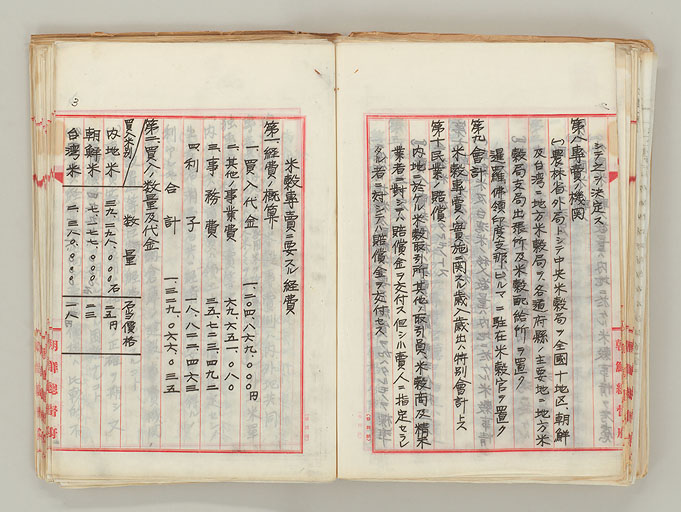 シテ之ヲ決定ス
第八專賣ノ機関
(一)農林省外局トシテ中央米穀局ヲ全國十地区、朝鮮
及台湾ニ地方米穀局ヲ、各道府県ノ主要地ニ地方米
穀局支局出張所及米穀配給所ヲ置ク
暹羅、佛領印度支那、ビルマニ駐在米穀官ヲ置ク
第九會計
米穀專賣ノ實施ニ関スル歳入歳出ハ特別會計トス
第十民業ノ賠償
内地ニ於ケル米穀取引所其ノ他ノ取引員、米穀商及精米
業者ニ對シテハ賠償金ヲ交付ス但シ小賣人ニ指定セラレ
タル者ニ対シテハ賠償金ヲ交付セス
米穀專賣ニ要スル經費
第一、經費ノ概算
一、買入代金 一、二〇四、八六九、〇〇〇円
二、其ノ他ノ事業費 六九、六五一、〇八〇
三、事務費 三五、七二三、四九二
四、利子 一八、八二二、四六三
合計 一、三二九、〇六六、〇三五
第二、買入ノ数量及代金
買入米別 数量 石当價格
内地米 三九、二九八、〇〇〇石 二五円
朝鮮米 二三
台湾米 一八
朝鮮總督府
朝鮮總督府